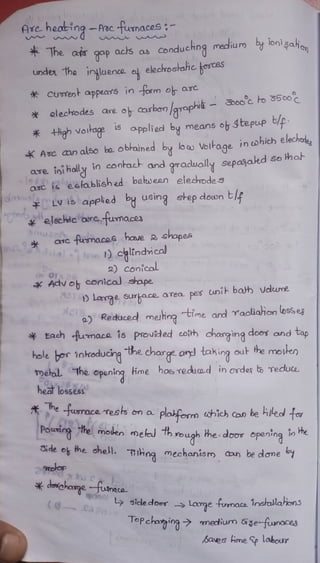 Arc heating - Arc furnaces :-
* The air gap acts as conducting medium by ionization
under the influence of electrostatic forces
* current appears in form of arc
* electrodes are of carbon/graphite - 3000°c to 3500°c
* High voltage is applied by means of stepup t/f.
* Arc can also be obtained by low voltage in which electrodes
are initially in contact and gradually separated so that
arc is established between electrodes
* LV is applied by using step down t/f
* electric arc furnaces
* arc furnaces have 2 shapes
1) cylindrical
2) conical
* Adv of conical shape
1) Large surface area per unit bath volume
2) Reduced melting time and radiation losses
* Each furnace is provided with charging door and tap
hole for introducing the charge and taking out the molten
metal. The opening time has reduced in order to reduce
heat losses
* The furnace rests on a platform which can be tilted for
Pouring the molten metal through the door opening in the
side of the shell. Tilting mechanism can be done by
motor
* furnace
↳ side door → Large furnace installations
Top charging → medium size furnaces
saves time & labour